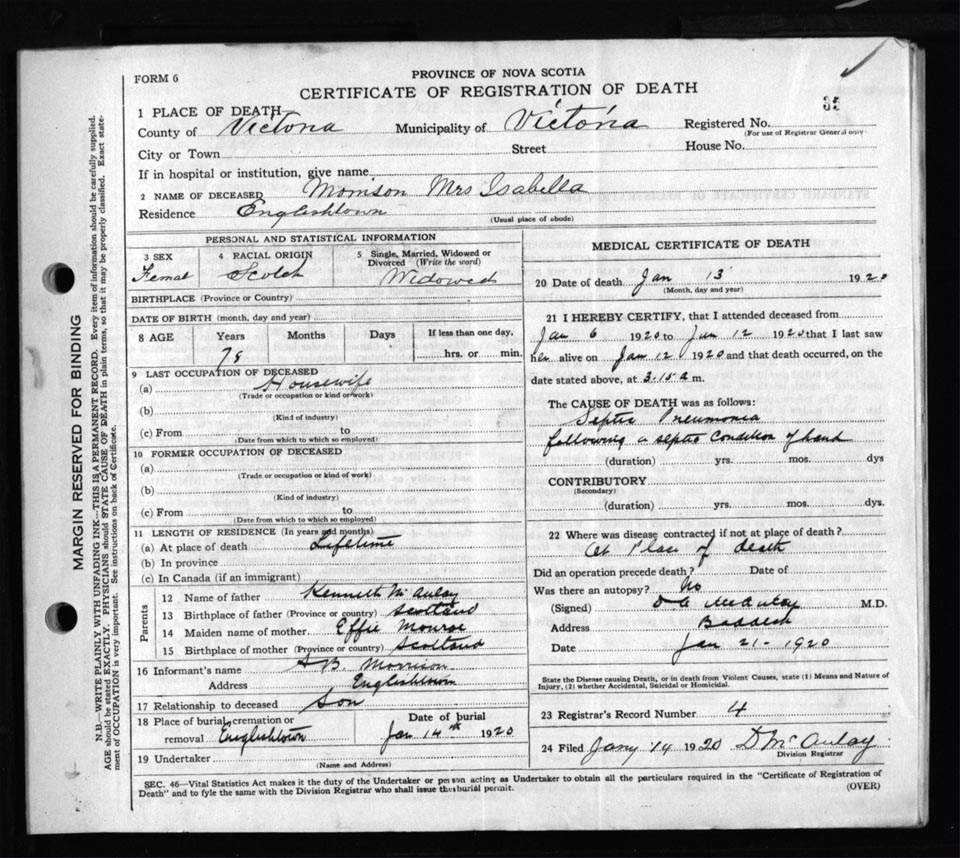 PROVINCE OF NOVA SCOTIA
FORM 6
CERTIFICATE OF REGISTRATION OF DEATH
35
1 PLACE OF DEATH
County of Victoria Municipality of Victoria Registered No.
(For use of Registrar General only
City or Town Street House No.
If in hospital or institution, give name
2 NAME OF DECEASED Morrison Mrs Isabella
Residence Englishtown (Usual place of abode)
PERSONAL AND STATISTICAL INFORMATION
3 SEX 4 RACIAL ORIGIN 5 Single, Married, Widowed or Divorced (Write the word)
Femal Scotch Widowed
BIRTHPLACE (Province or Country)
DATE OF BIRTH (month, day and year)
8 AGE Years Months Days If less than one day,
78 hrs. or min.
9 LAST OCCUPATION OF DECEASED
(a) Housewife
(Trade or occupation or kind of work)
(b)
(Kind of industry)
(c) From to
(Date from which to which so employed)
10 FORMER OCCUPATION OF DECEASED
(a)
(Trade or occupation or kind of work)
(b)
(Kind of industry)
(c) From to
(Date from which to which so employed)
11 LENGTH OF RESIDENCE (In years and months)
(a) At place of death Lifetime
(b) In province
(c) In Canada (if an immigrant)
Parents
12 Name of father Kenneth McAulay
13 Birthplace of father (Province or country) Scotland
14 Maiden name of mother Effie Monroe
15 Birthplace of mother (Province or country) Scotland
16 Informant's name B. Morrison
Address Englishtown
17 Relationship to deceased Son
18 Place of burial, cremation or Date of burial
removal Englishtown Jan 14th 1920
19 Undertaker
(Name and Address)
MEDICAL CERTIFICATE OF DEATH
20 Date of death Jan 13 1920
(Month, day and year)
21 I HEREBY CERTIFY, that I attended deceased from
Jan 6 1920 to Jan 12 1920 that I last saw
her alive on Jan 12 1920 and that death occurred, on the
date stated above, at 3.15 a m.
The CAUSE OF DEATH was as follows:
Septic Pneumonia
following a septic condition of hand
(duration) yrs. mos. dys
CONTRIBUTORY
(Secondary)
(duration) yrs. mos. dys.
22 Where was disease contracted if not at place of death?
At Place of death
Did an operation precede death? Date of
Was there an autopsy? No
(Signed) McAulay M.D.
Address Baddeck
Date Jan 21 - 1920
State the Disease causing Death, or in death from Violent Causes, state (1) Means and Nature of
Injury, (2) whether Accidental, Suicidal or Homicidal.
23 Registrar's Record Number 4
24 Filed Jany 14 1920 D McAulay
Division Registrar
SEC. 46—Vital Statistics Act makes it the duty of the Undertaker or person acting as Undertaker to obtain all the particulars required in the "Certificate of Registration of
Death" and to fyle the same with the Division Registrar who shall issue the burial permit. (OVER)
MARGIN RESERVED FOR BINDING
N.B.—WRITE PLAINLY WITH UNFADING INK—THIS IS A PERMANENT RECORD. Every item of information should be carefully supplied.
AGE should be stated EXACTLY. PHYSICIANS should STATE CAUSE OF DEATH in plain terms, so that it may be properly classified. Exact state-
ment of OCCUPATION is very important. See instructions on back of Certificate.